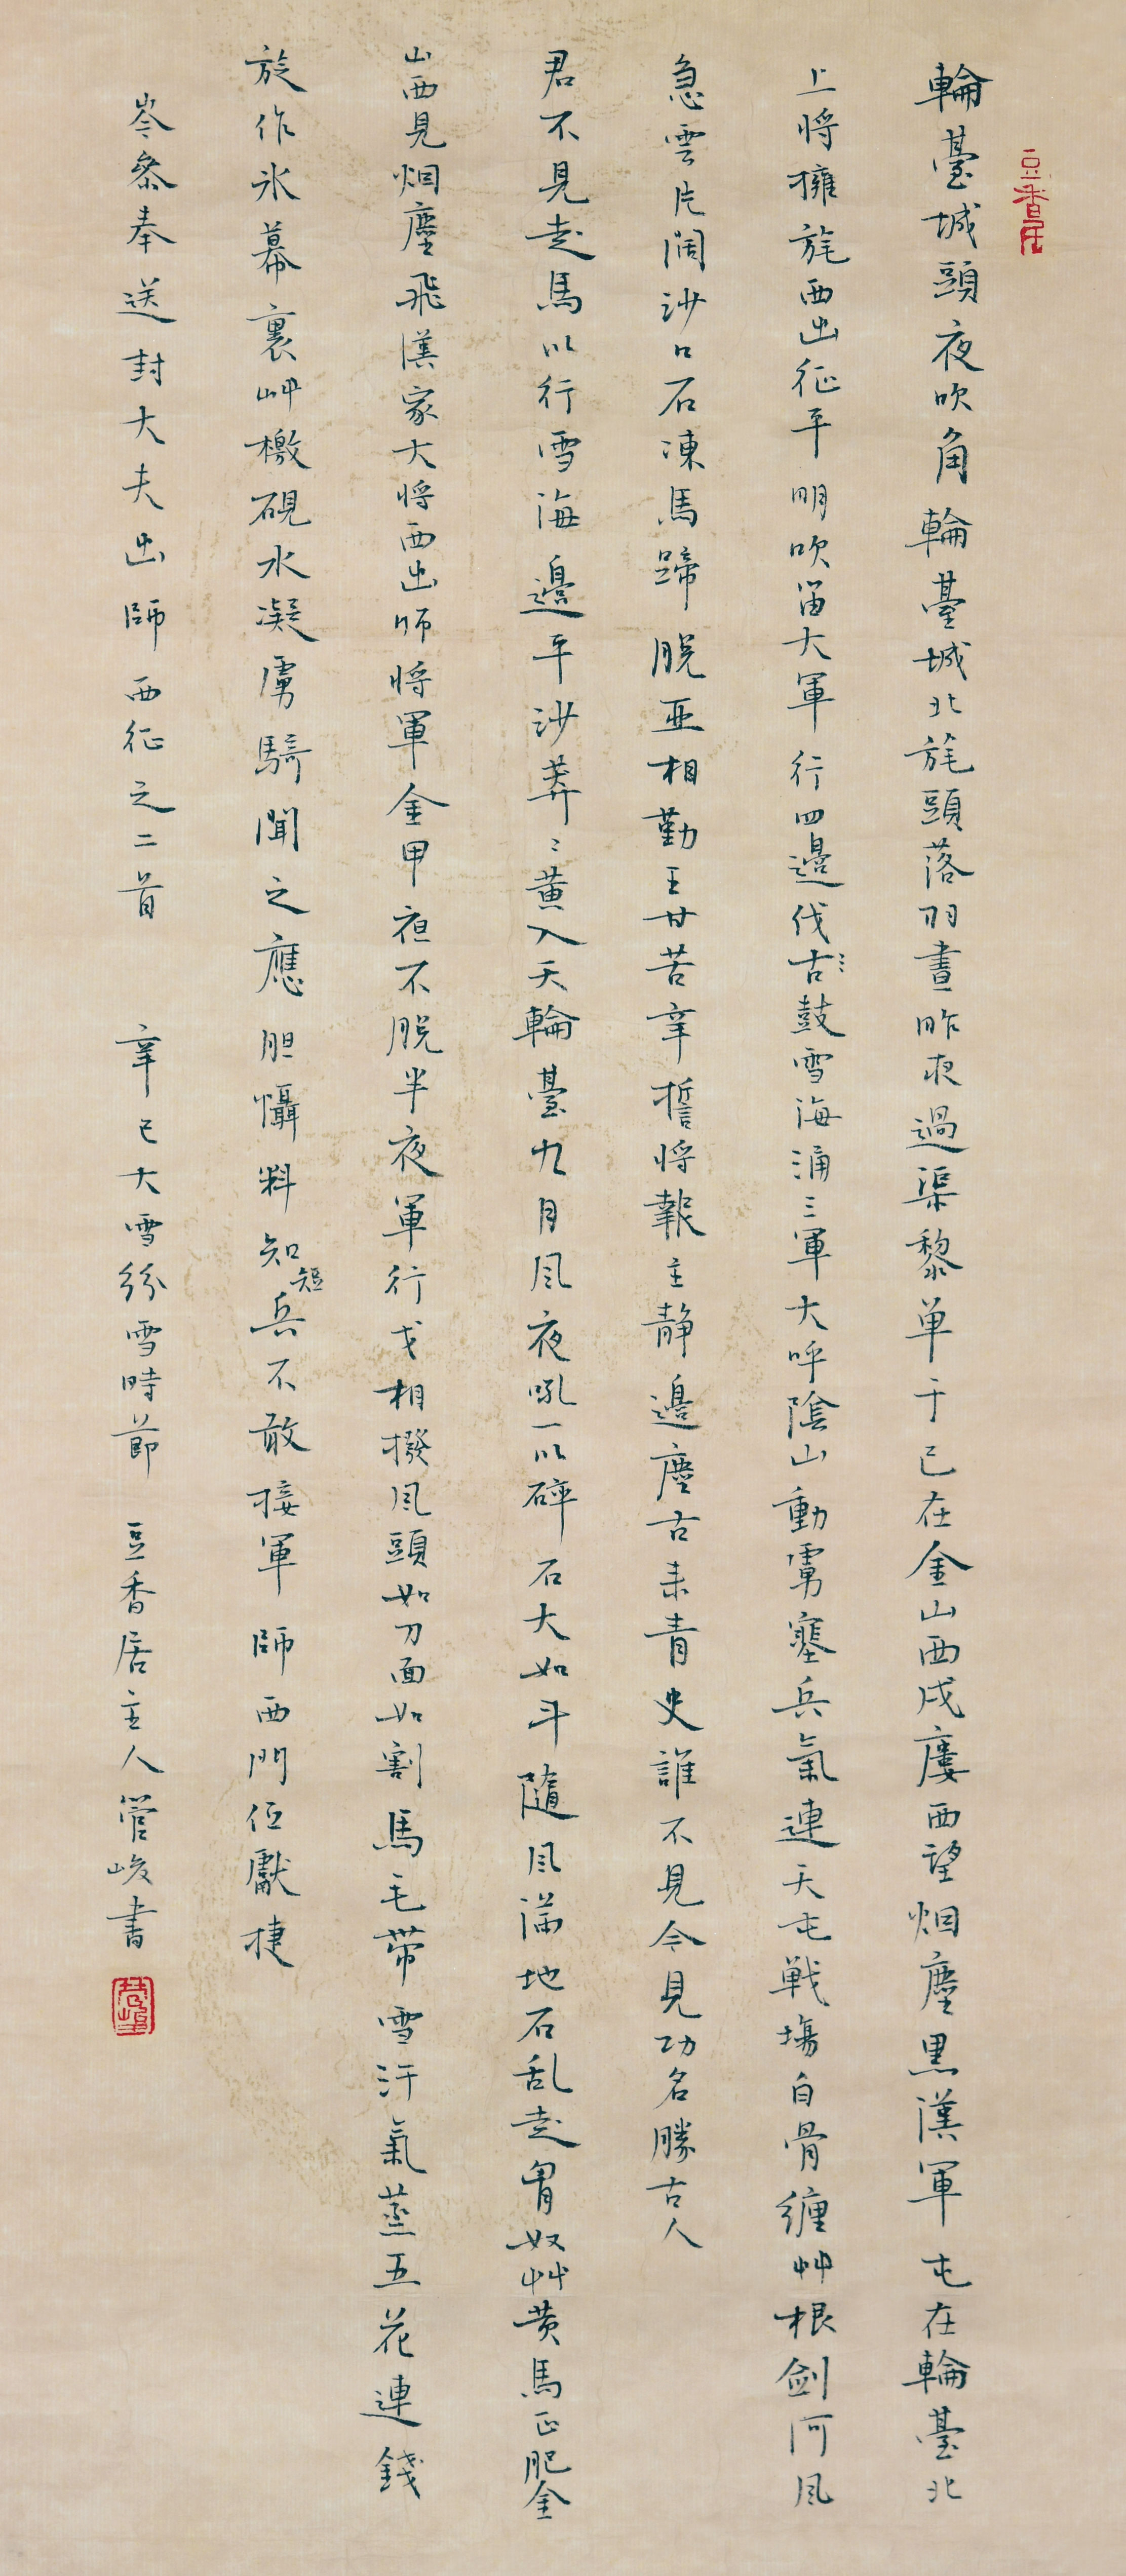 豆香居
輪臺城頭夜吹角輪臺城北旄頭落羽書昨夜過渠黎单于已在金山西戍廔西望烟塵黑漢軍屯在輪臺北
上将擁旄西出征平明吹笛大軍行四邉伐古鼓雪海涌三軍大呼陰山動虜塞兵氣連天屯戦場白骨纏艸根劍河風
急雲片闊沙口石凍馬蹄脱亜相勤王甘苦辛誓将報主静邉塵古来青史誰不見今見功名勝古人
君不見走馬川行雪海邉平沙莽〻黄入天輪臺九月風夜吼一川碎石大如斗隨風满地石乱走匈奴艸黄馬正肥金
山西見烟塵飛漢家大将西出师将軍金甲夜不脱半夜軍行戈相撥風頭如刀面如割馬毛带雪汗氣蒸五花連錢
旋作氷幕裏艸檄硯水凝虜騎聞之應胆懾料知短兵不敢接軍師西門伫獻捷
岑參奉送封大夫出師西征之二首 辛巳大雪紛雪時節 豆香居主人管峻書